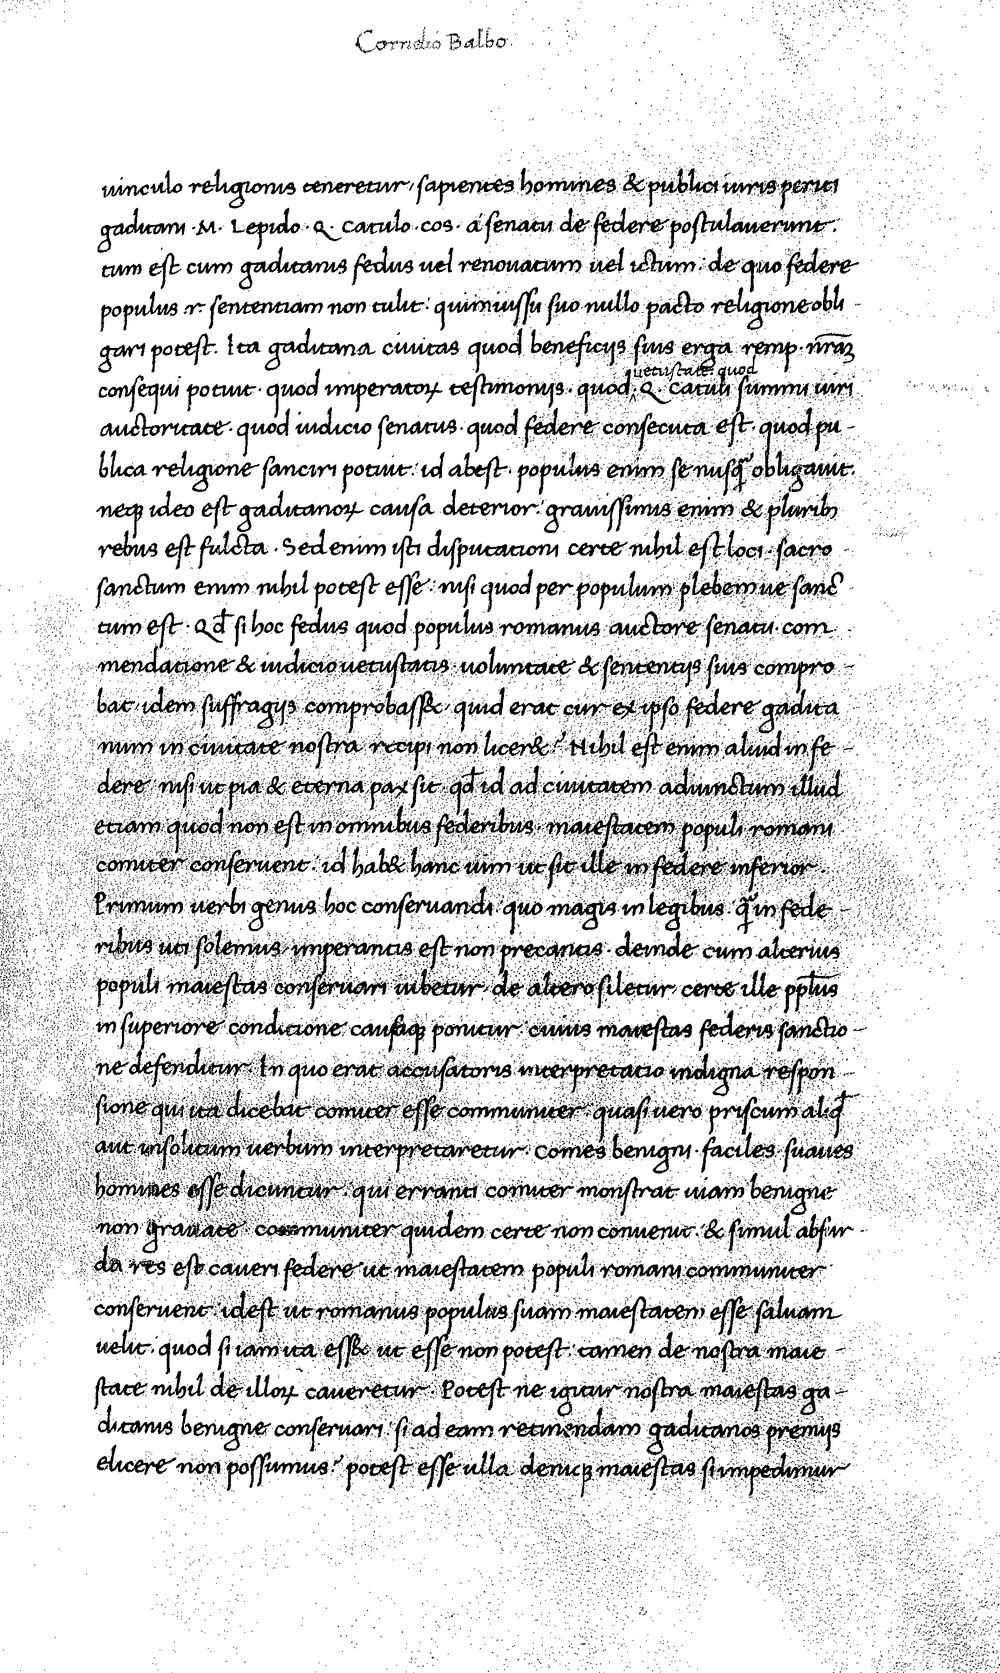 Cornelio Balbo
uinculo religionis teneretur, sapientes homines & publici iuris periti
gaditani ·M· Lepido ·Q· Catulo ·cos· a senatu de federe postulauerunt.
tum est cum gaditanis fedus uel renouatum uel ictum: de quo federe
populus ·r· sententiam non tulit: qui iniussu suo nullo pacto religione obli-
gari potest. Ita gaditana ciuitas quod beneficijs suis erga remp. nr̄aꝫ
consequi potuit· quod imperatoꝝ testimonijs· quod uetustate· quod ·Q· Catuli summi uiri
auctoritate· quod iudicio senatus· quod federe consecuta est· quod pu-
blica religione sanciri potuit: id abest· populus enim se nusq̄ obligauit.
neqꝫ ideo est gaditanoꝝ causa deterior: grauissimis enim & pluribꝫ
rebus est fulcta· Sed enim isti disputationi certe nihil est loci· sacro
sanctum enim nihil potest esse: nisi quod per populum plebemue sanc-
tum est· Qd̄ si hoc fedus quod populus romanus auctore senatu· com
mendatione & iudicio uetustatis· uoluntate & sententijs suis compro-
bat· idem suffragijs comprobass&· quid erat cur ex ipso federe gadita
num in ciuitate nostra recipi non licer&? Nihil est enim aliud in fe-
dere nisi ut pia & eterna pax sit· qd̄ id ad ciuitatem adiunctum illud
etiam quod non est in omnibus federibus· maiestatem populi romani
comiter conseruent: id hab& hanc uim ut sit ille in federe inferior.
Primum uerbi genus hoc conseruandi· quo magis in legibus q̄ in fede-
ribus uti solemus· imperantis est non precantis· deinde cum alterius
populi maiestas conseruari iubetur· de altero siletur certe ille ppl̄us
in superiore condicione causaqꝫ ponitur· cuius maiestas federis sanctio-
ne defenditur· In quo erat accusatoris interpretatio indigna respon-
sione qui ita dicebat comiter esse communiter· quasi uero priscum aliqd̄
aut insolitum uerbum interpretaretur· Comes benigni· faciles· suaues
homines esse dicuntur· qui erranti comiter monstrat uiam benigne
non grauate communiter quidem certe non conuenit· & simul absur
da res est caueri federe ut maiestatem populi romani communiter
conseruent· idest ut romanus populus suam maiestatem esse saluam
uelit· quod si iam ita ess& ut esse non potest: tamen de nostra maie-
state nihil de illoꝝ caueretur· Potest ne igitur nostra maiestas ga-
ditanis benigne conseruari: si ad eam retinendam gaditanos premijs
elicere non possumus? potest esse ulla deniqꝫ maiestas si impedimur